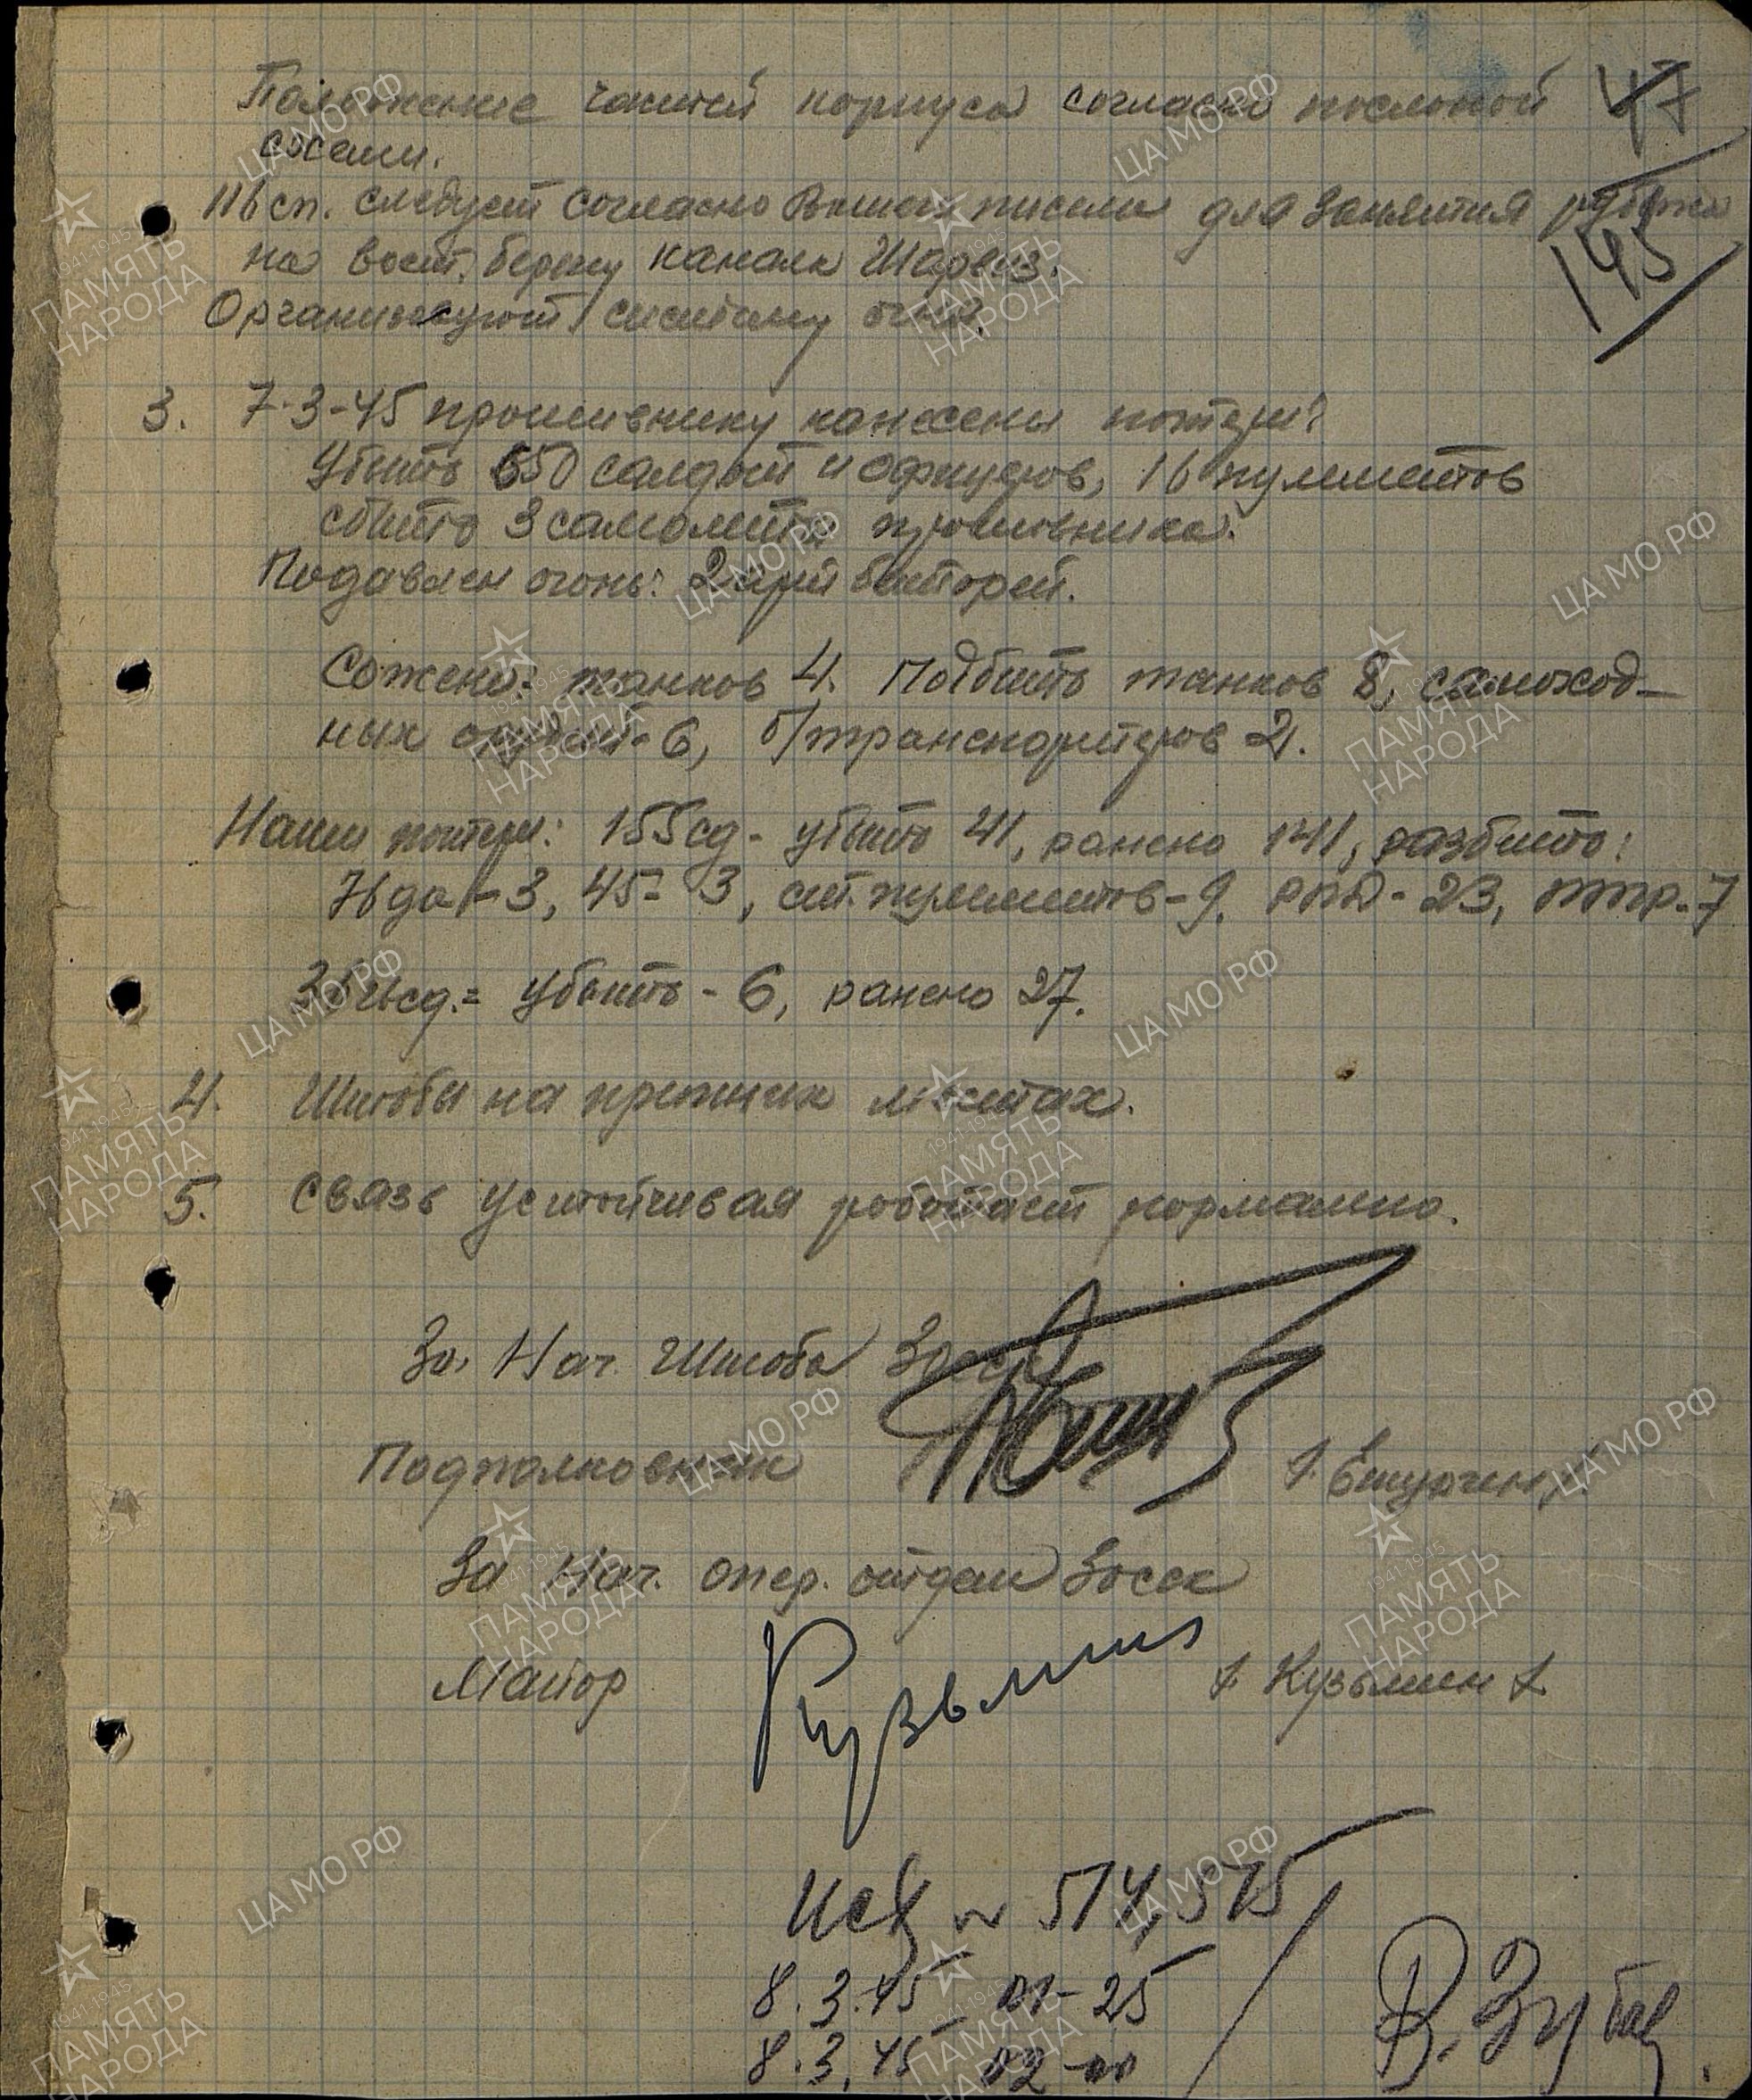 Положение частей корпуса согласно посланой 47
схеми.
116 сп. следует согласно Вашего писма для занятия рубежа
на вост. берегу канала Шарвиз. 195
Организовуют систему огня.
3. 7-3-45 противнику нанесены потери:
Убито 650 солдат и офицеров, 16 пулеметов
сбито 3 самолета противника.
Подавлен огонь: 2 арт батарей.
Сожено: танков 4. Подбито танков 8, самоход-
ных орудий-6, б/транспортеров 2.
Наши потери: 155 сд - убито 41, ранено 141, разбито:
76 да - 3, 45 = 3, ст. пулеметов - 9, рпд - 23, птр. 7
236 сд. = убито - 6, ранено 27.
4. Штабы на прежних местах.
5. Связь устойчивая работает нормально.
За. Нач. Штаба 30 ск
Подполковник
За Нач. опер. отдел 30 ск
Майор Кузьмин /Кузьмин/
Исх № 514, 515
8.3.45 01-25
8.3.45 02-00
В. Зубец
ЦА МО РФ
ПАМЯТЬ НАРОДА
1941-1945